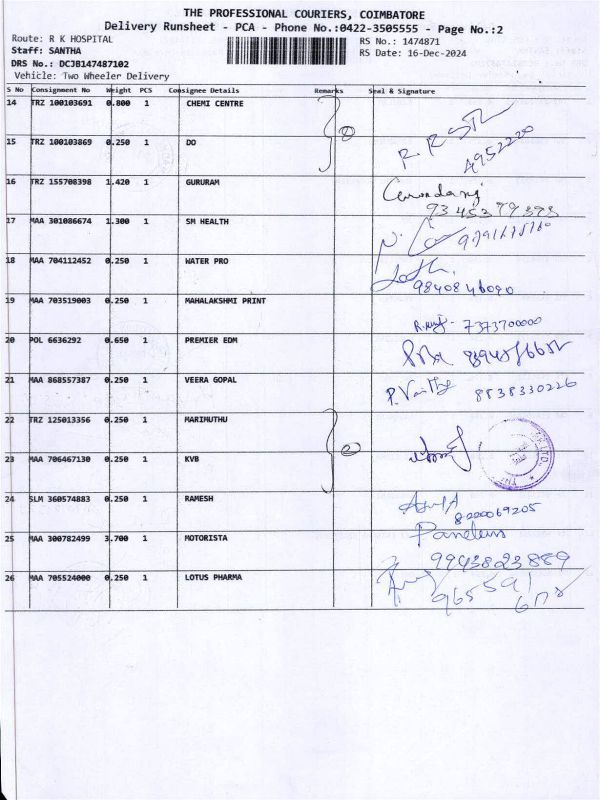 THE PROFESSIONAL COURIERS, COIMBATORE
Delivery Runsheet - PCA - Phone No.:0422-3505555 - Page No.:2
Route: R K HOSPITAL
RS No.: 1474871
Staff: SANTHA
RS Date: 16-Dec-2024
DRS No.: DCJB147487102
Vehicle: Two Wheeler Delivery
S No Consignment No Weight PCS Consignee Details Remarks Seal & Signature
14 TRZ 100103691 0.800 1 CHEMI CENTRE
15 TRZ 100103869 0.250 1 DO 4952220
16 TRZ 155708398 1.420 1 GURURAM
17 MAA 301086674 1.300 1 SM HEALTH
18 MAA 704112452 0.250 1 WATER PRO
9840846090
19 MAA 703519003 0.250 1 MAHALAKSHMI PRINT 7373700000
20 POL 6636292 0.650 1 PREMIER EDM
21 MAA 868557387 0.250 1 VEERA GOPAL 8838330226
22 TRZ 125013356 0.250 1 MARIMUTHU
23 MAA 706467130 0.250 1 KVB
24 SLM 360574883 0.250 1 RAMESH 8220069205
25 MAA 300782499 3.700 1 MOTORISTA
9943823889
26 MAA 705524000 0.250 1 LOTUS PHARMA